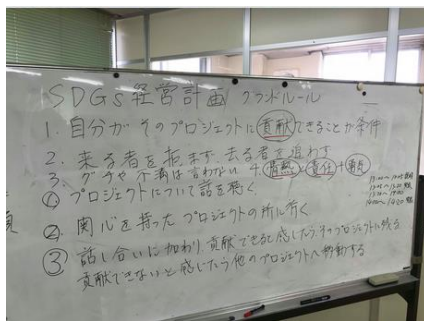 SDGs 経営計画 グランドルール
1. 自分がそのプロジェクトに貢献できることが条件
2. 来る者を拒まず、去る者を追わず
3. グチや不満は言わない 4. 情熱と責任+
① プロジェクトについて話を聴く
② 関心を持ったプロジェクトの所に行く
③ 話し合いに加わり、貢献できると感じたらそのプロジェクトに残る
貢献できないと感じたら他のプロジェクトへ移動する